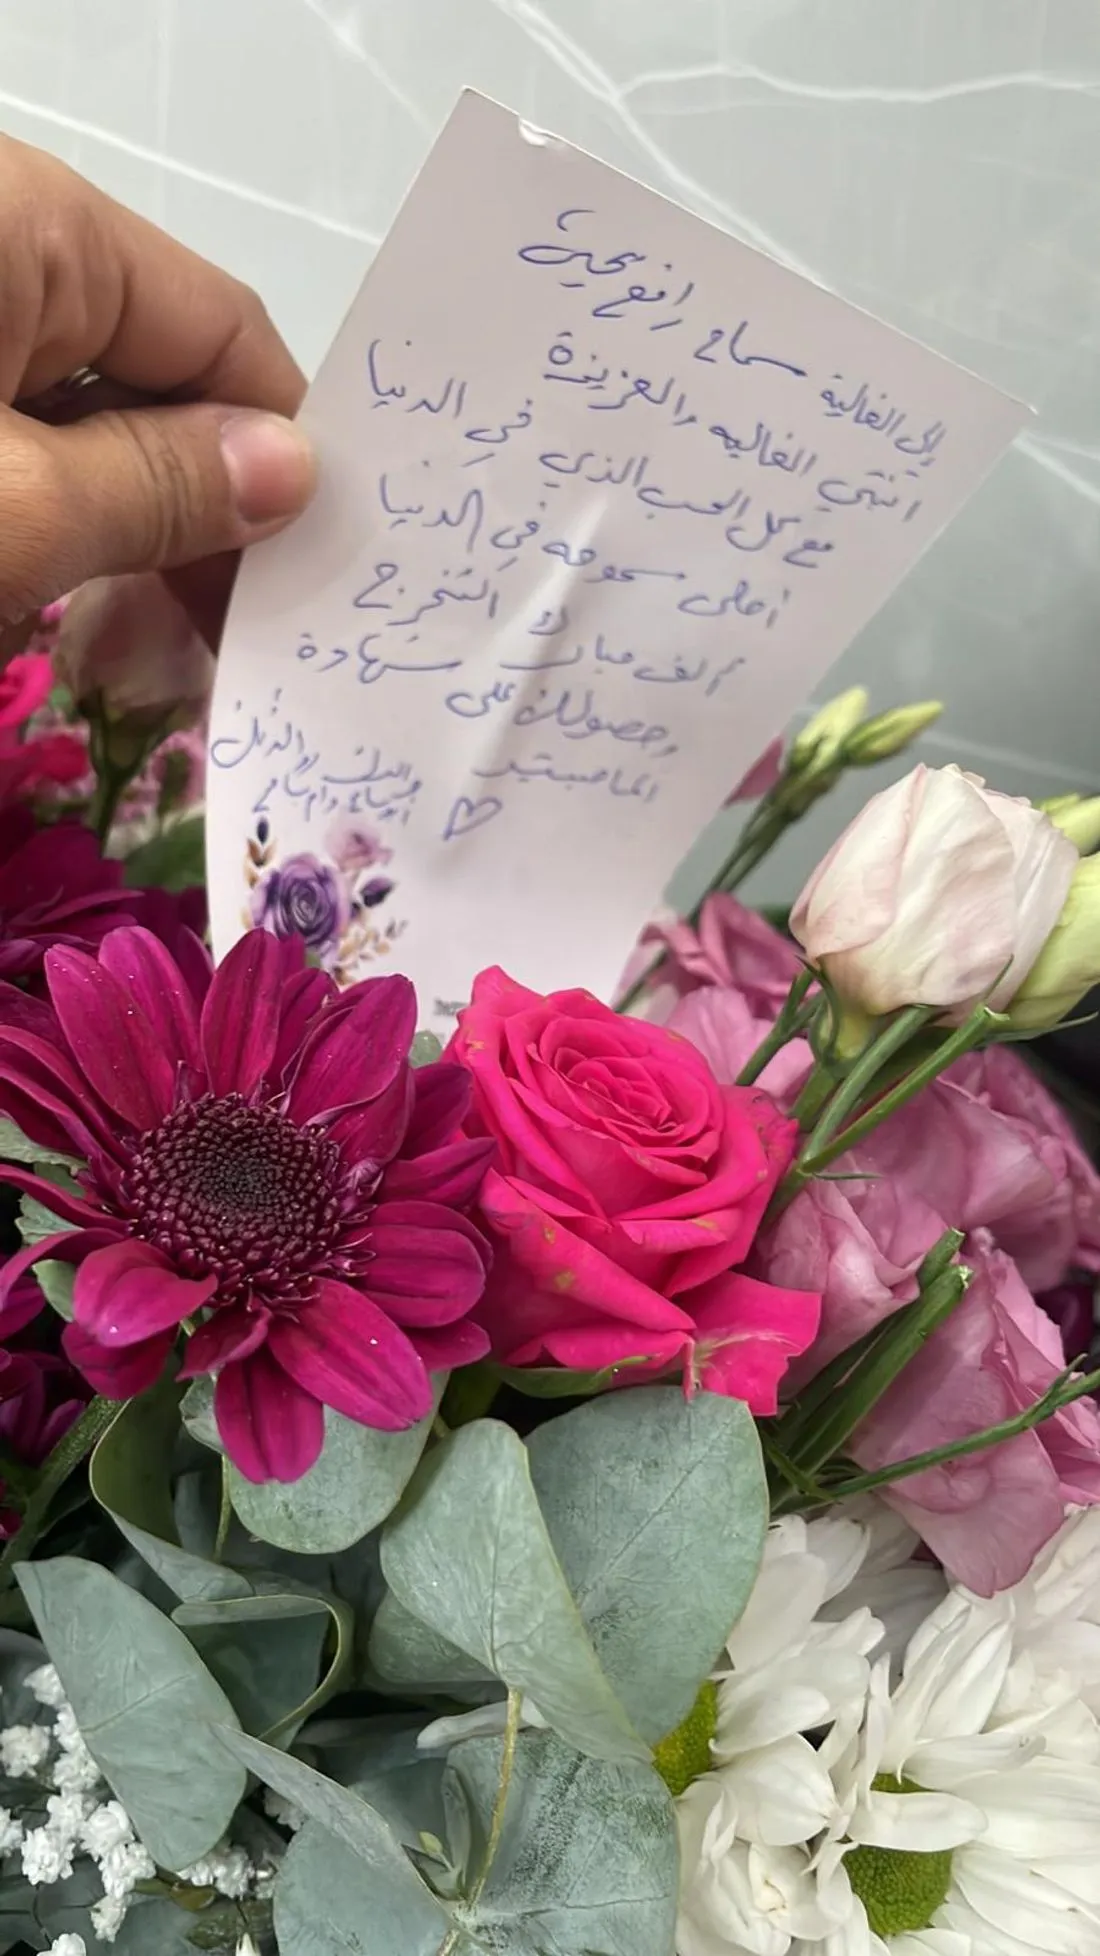 إلى الغالية سماح
انتي الغاليه والعزيزة
مع كل الحب الذي في الدنيا
أحلى سموحه في الدنيا
ألف مبارك التخرج
وحصولك على شهادة
الماجستير